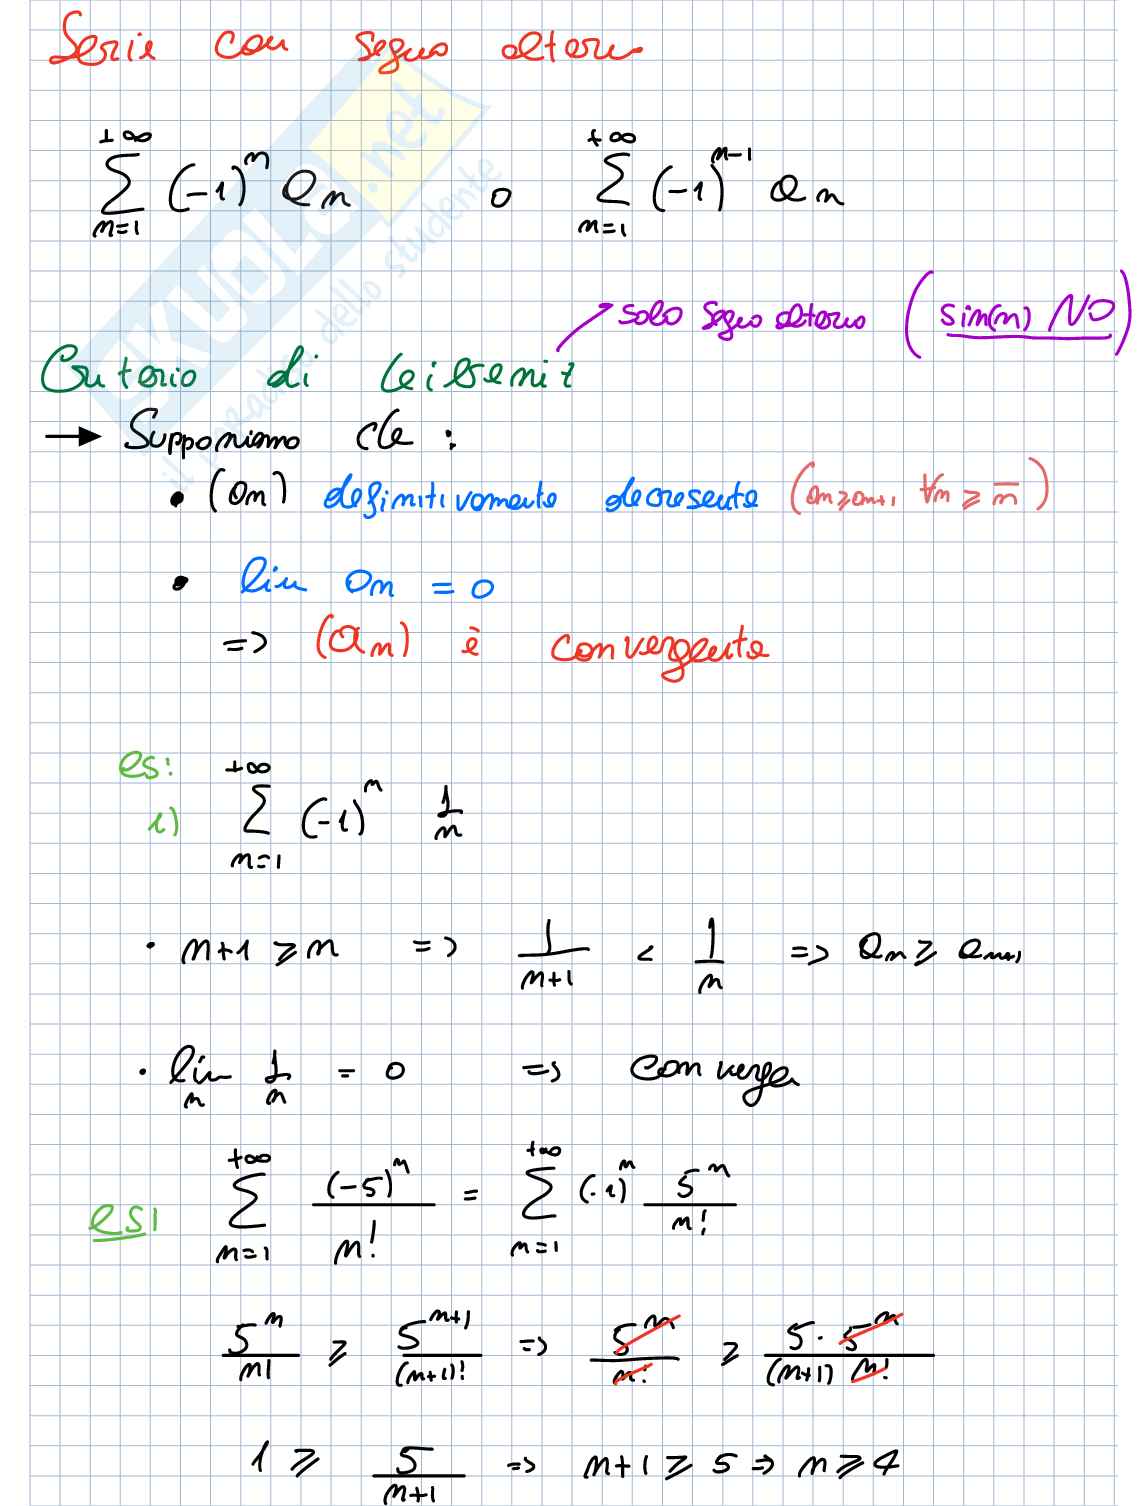 Serie con segno alterno
+∞ ∑ n=1 (-1)^n a_n o +∞ ∑ n=1 (-1)^{n-1} a_n
solo segno alterno (sin(n) NO)
Criterio di Leibeniz
→ Supponiamo che :
• (a_n) definitivamente decresente (a_n ≥ a_{n+1} ∀n ≥ n̅)
• lim a_n = 0
=> (a_n) è convergente
es:
1) +∞ ∑ n=1 (-1)^n 1/n
• n+1 ≥ n => 1/(n+1) < 1/n => a_n ≥ a_{n+1}
• lim_n 1/n = 0 => converge
es1 +∞ ∑ n=1 (-5)^n/n! = +∞ ∑ n=1 (-1)^n 5^n/n!
5^n/n! ≥ 5^{n+1}/(n+1)! => 5^n/n! ≥ 5·5^n/((n+1) n!)
1 ≥ 5/(n+1) => n+1 ≥ 5 => n ≥ 4
SKUOLA.net
il paradiso dello studente